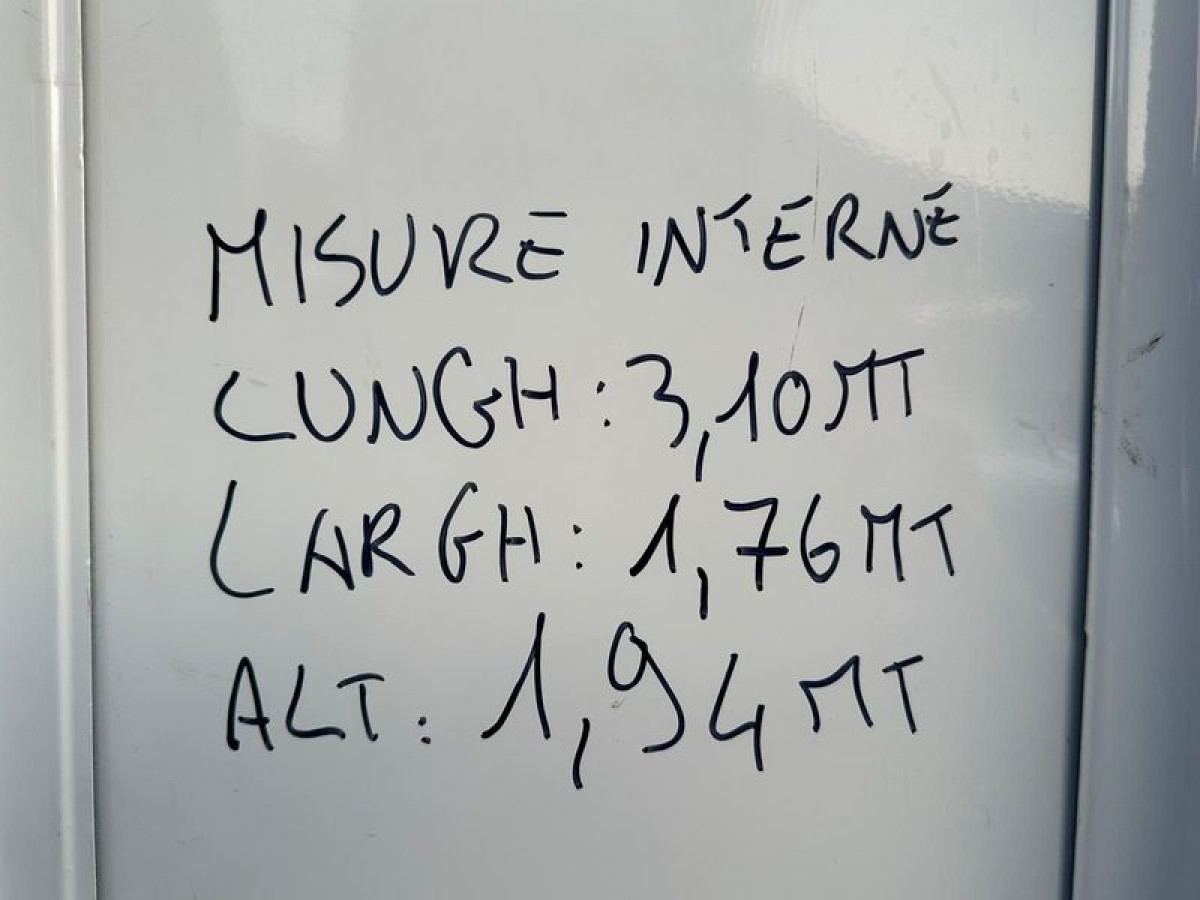 MISURE INTERNE
LUNGH: 3,10 MT
LARGH: 1,76 MT
ALT: 1,94 MT